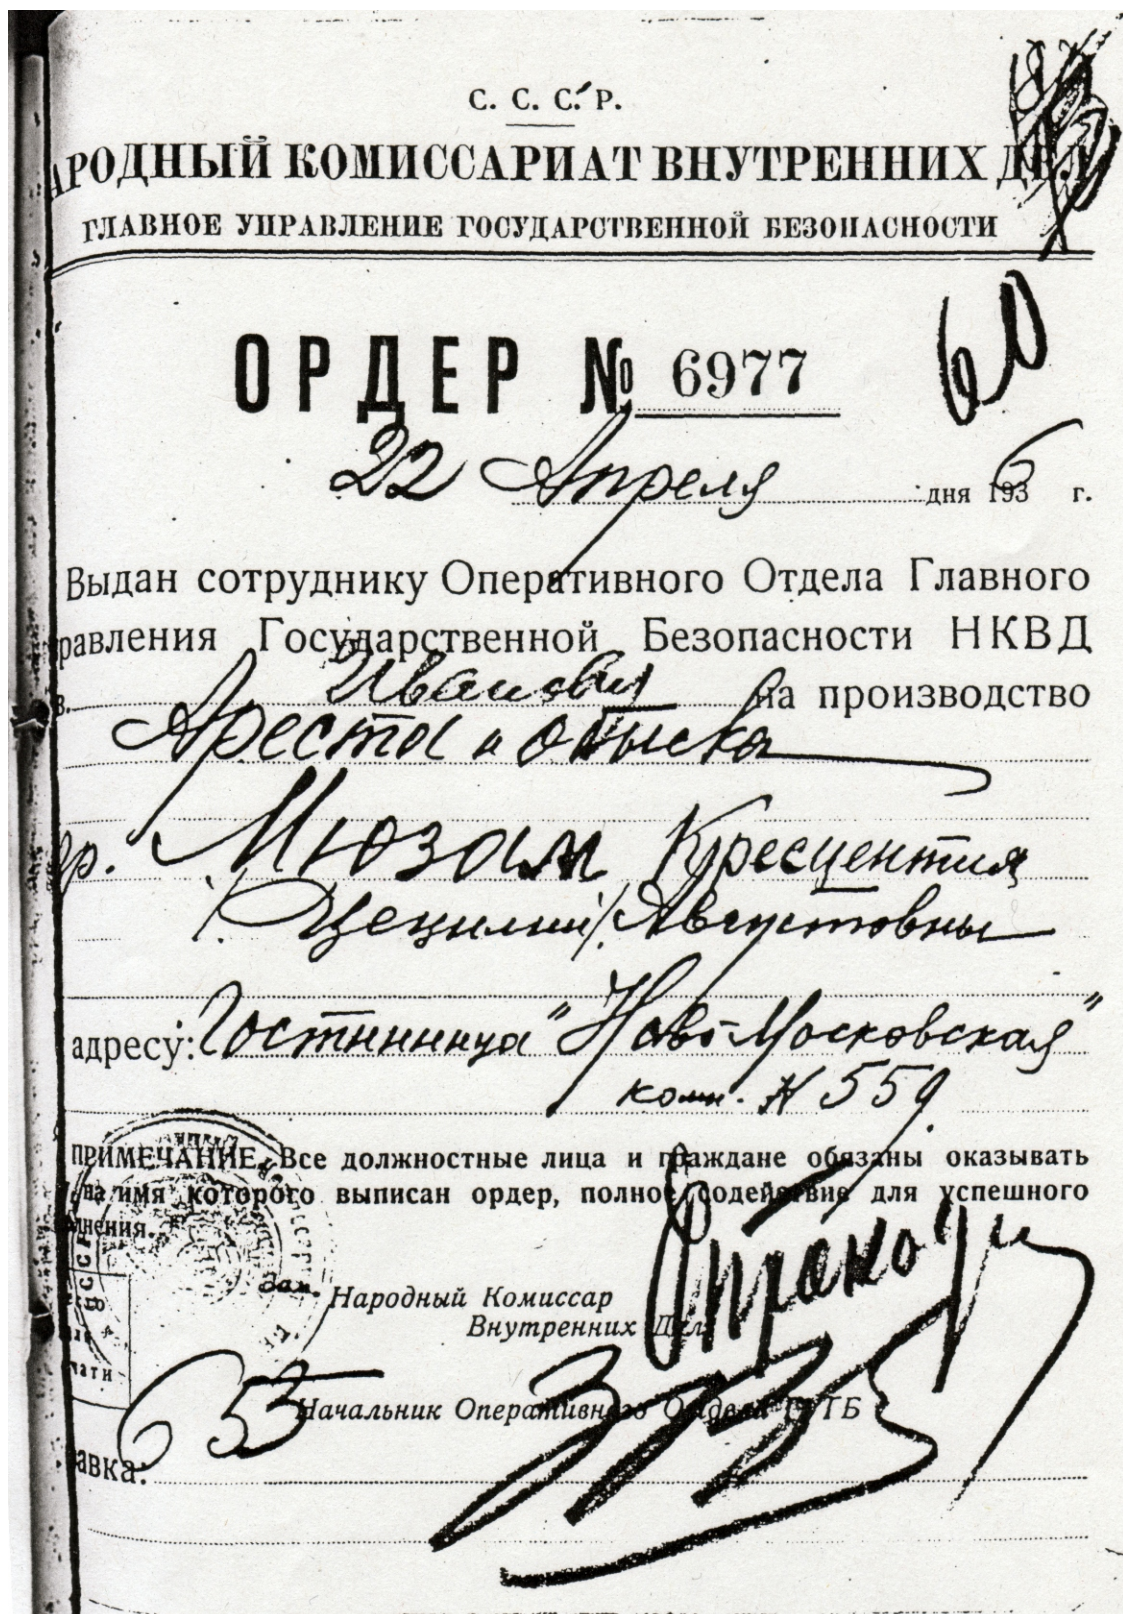 С. С. С. Р.
АРОДНЫЙ КОМИССАРИАТ ВНУТРЕННИХ ДЕЛ
ГЛАВНОЕ УПРАВЛЕНИЕ ГОСУДАРСТВЕННОЙ БЕЗОПАСНОСТИ
60
ОРДЕР № 6977
22 Апреля дня 1936 г.
Выдан сотруднику Оперативного Отдела Главного
равления Государственной Безопасности НКВД
в. Иванову на производство
Ареста и обыска
гр. Мюзам Кресцентия
/Цецилии/ Августовны
адресу: Гостинница "Ново-Московская"
комн. № 559.
ПРИМЕЧАНИЕ. Все должностные лица и граждане обязаны оказывать
на имя которого выписан ордер, полное содействие для успешного
лнения.
Зам. Народный Комиссар
Внутренних Дел
чати
Начальник Оперативного Отдела ГУГБ
авка: